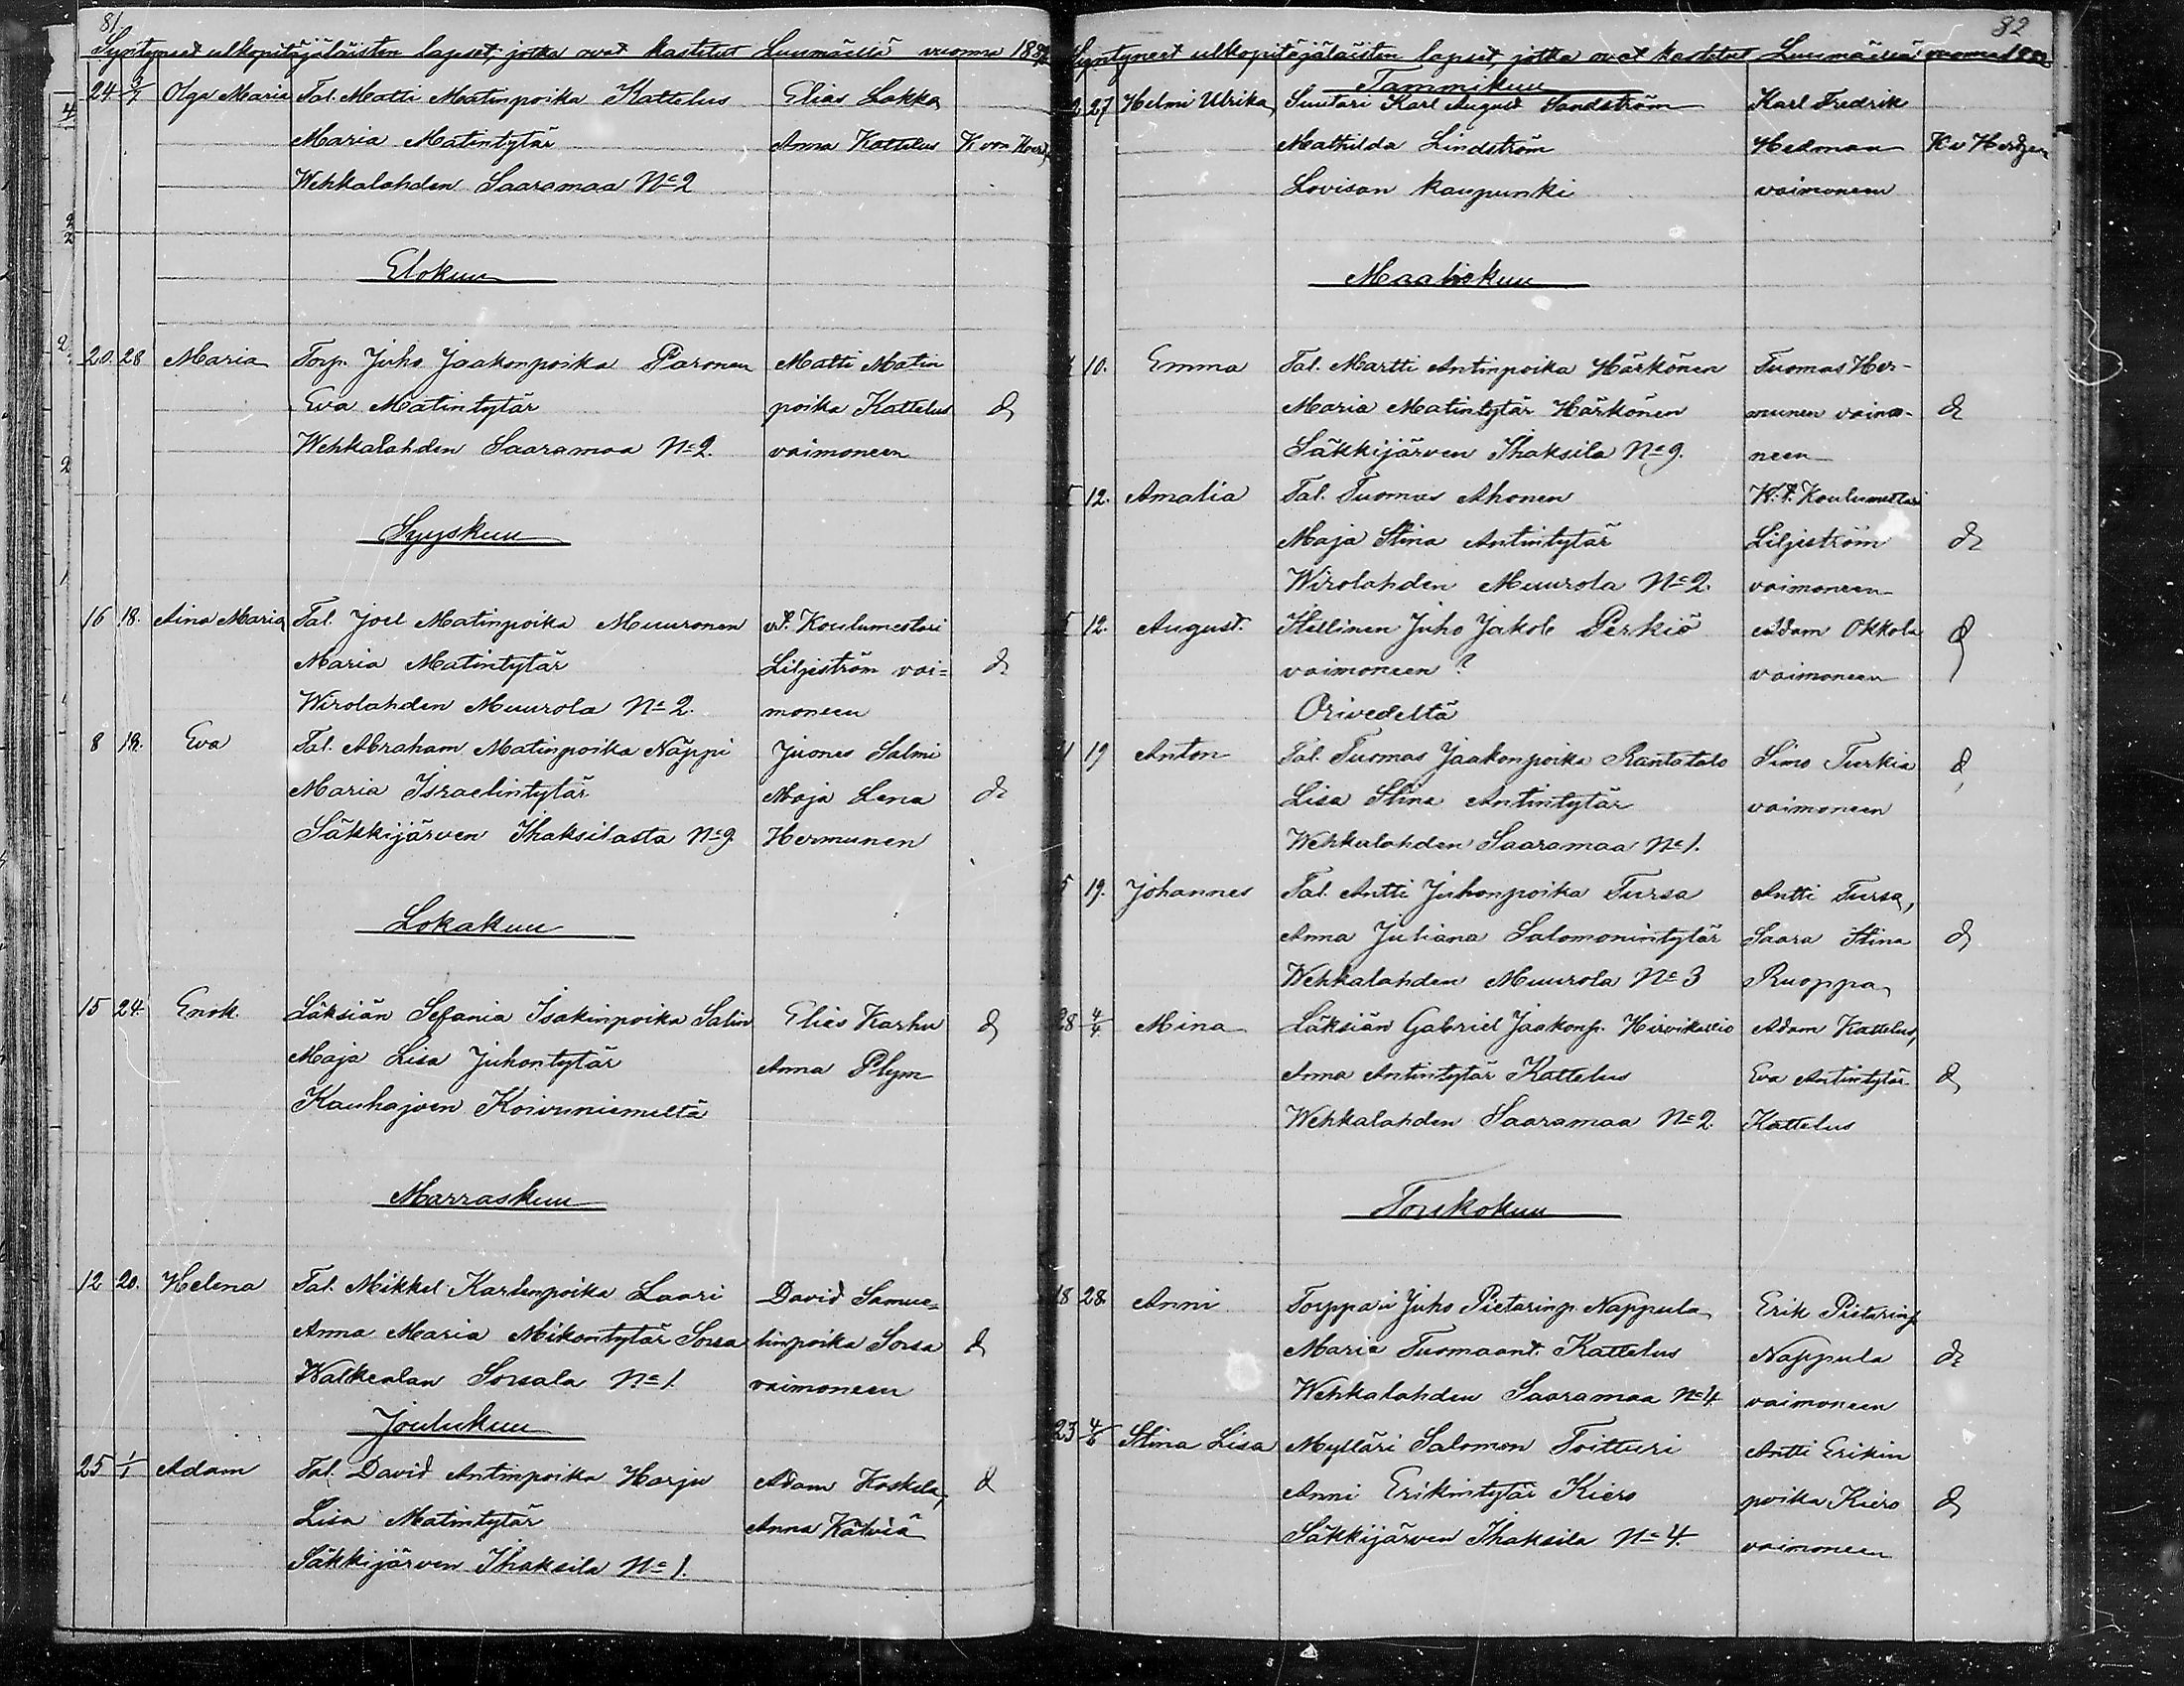 81.
Syntyneet ulkopitäjäläisten lapset, jotka ovat kastetut Luumäellä vuonna
24 3/7 Olga Maria Tal. Matti Matinpoika Kattelus Elias Lakka,
Maria Matintytär Anna Kattelus K von
Wehkalahden Saaramaa No 2
Elokuu
20. 28 Maria Torp. Juho Jaakonpoika Paronen Matti Matin
Eva Matintytär poika Kattelus d
Wehkalahden Saaramaa No 2. vaimoneen
Syyskuu
16 18. Aina Maria Tal. Joel Matinpoika Muuronen vt. Koulumestari
Maria Matintytär Liljeström vai= d
Wirolahden Muurola No 2. moneen
8 Eva Tal. Abraham Matinpoika Näppi Juones Salmi
Maria Israelintytär Maja Lena d
Säkkijärven Ihaksilasta No 9. Hermunen
Lokakuu
15 24. Enok. Läksiän Sefania Isakinpoika Salin Elias Karhu d
Maja Lisa Juhontytär Anna Plym
Kauhajoen Koivuniemeltä
Marraskuu
12 20. Helena Tal. Mikkel Karlenpoika Laari David Samue=
Anna Maria Mikontytär Sorsa linpoika Sorsa d
Walkealan Sorsala No 1. vaimoneen
Joulukuu
25 1/1 Adam Tal. David Antinpoika Harju Adam Koskela, d
Lisa Matintytär Anna Kätviä
Säkkijärven Ihaksila No 1.
82
Syntyneet ulkopitäjäläisten lapset, jotka ovat kastetut Luumäellä vuonna
Tammikuu
27 Helmi Ulrika, Suutari Karl August Sandström Karl Fredrik
Mathilda Lindström Hedman K v
Lovisan kaupunki vaimoneen
Maaliskuu
10. Emma Tal. Martti Antinpoika Härkönen Tuomas Her-
Maria Matintytär Härkönen munen vaimo- d
Säkkijärven Ihaksila No 9. neen
12. Amalia Tal. Tuomas Ahonen
Maja Stina Antintytär Liljeström d
Wirolahden Muurola No 2. vaimoneen
12. August. Itellinen Juho Jakob Perkiö Adam Okkola d
vaimoneen? vaimoneen
Orivedeltä
19 Anton Tal. Tuomas Jaakonpoika Rantatalo Simo Turkia d
Lisa Stina Antintytär vaimoneen
Wehkalahden Saaramaa No 1.
5 19. Johannes Tal. Antti Juhonpoika Tursa Antti Tursa,
Anna Juliana Salomonintytär Saara Stina d
Wehkalahden Muurola No 3 Ruoppa
28 4/4 Mina Läksiän Gabriel Jaakonp. Hirvikallio Adam Kattelus,
Anna Antintytär Kattelus Eva Antintytär d
Wehkalahden Saaramaa No 2. Kattelus
Toukokuu
18 28. Anni Torppari Juho Pietarinp. Nappula Erik Pietarinp.
Maria Tuomaant. Kattelus Nappula d
Wehkalahden Saaramaa No 4. vaimoneen
23 4/6 Stina Lisa Mylläri Salomon Toitturi Antti Erikin
Anni Erikintytär Kiero poika Kiero d
Säkkijärven Ihaksila No 4. vaimoneen